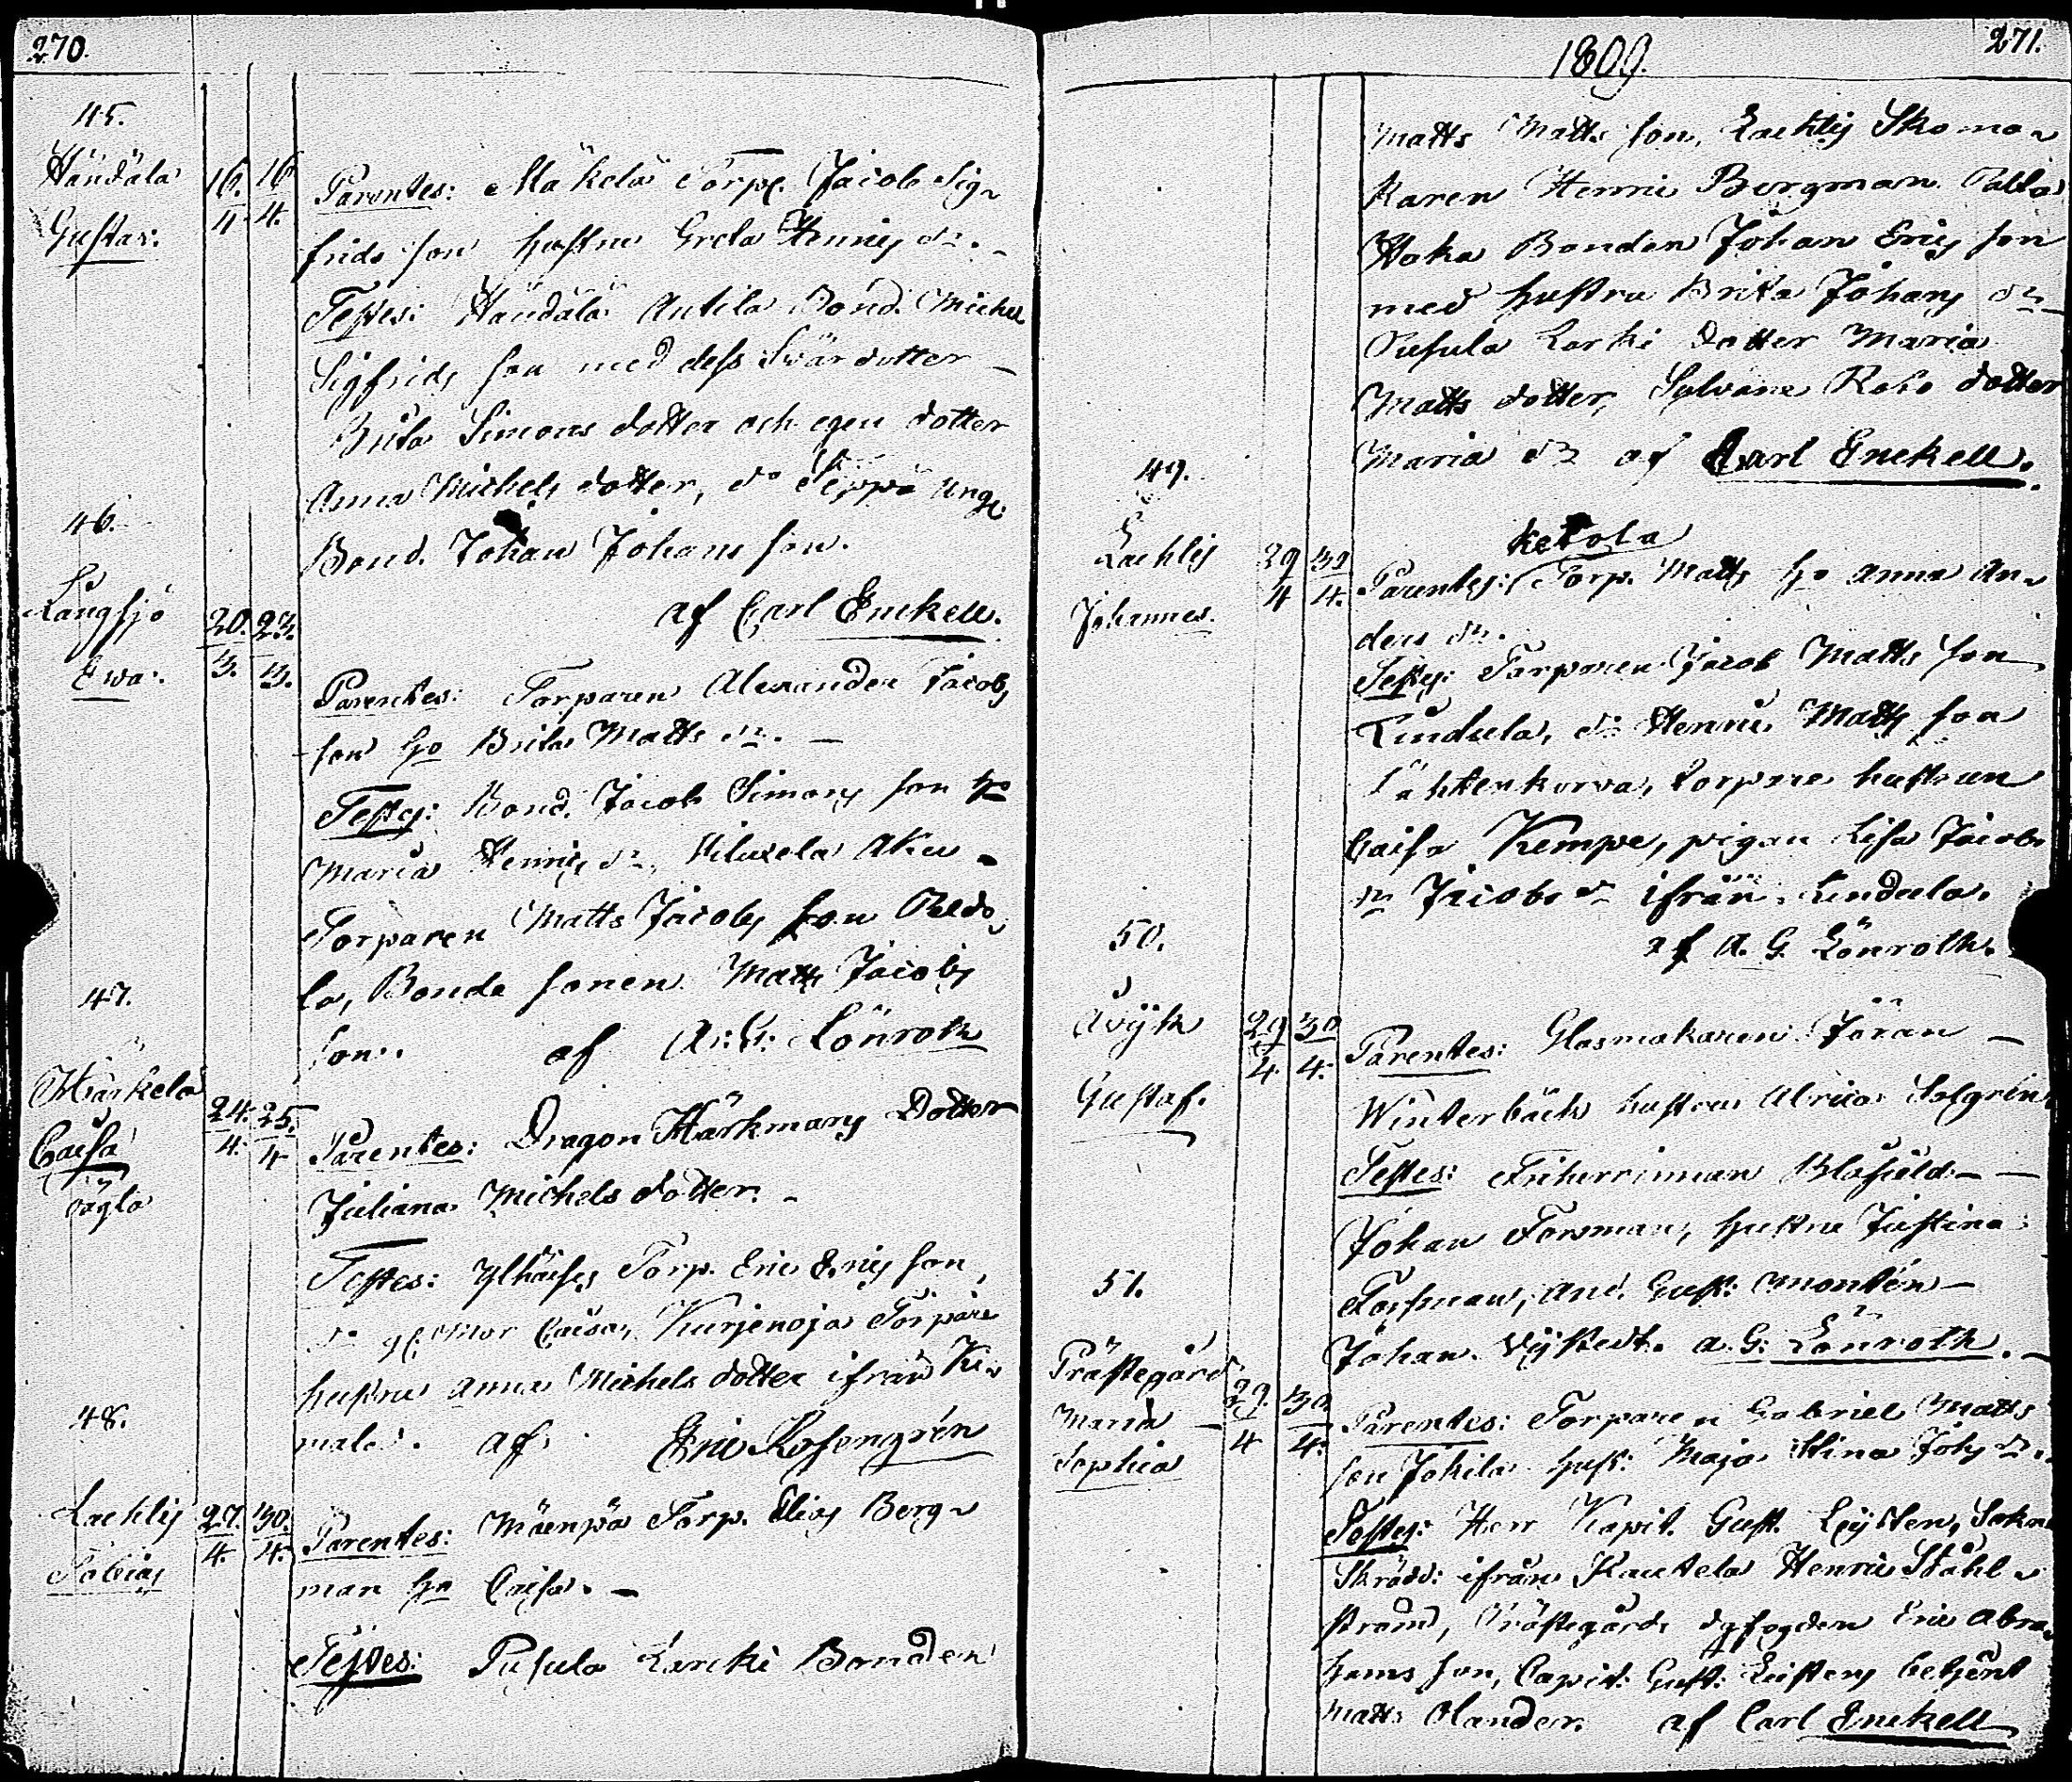 270.
45.
Händälä
Gustav:
16. 16
4 4.
Parentes: Mäkelä Torp. Jacob Sig-
frids son hustru Greta Henrics dr. -
Testes: Händälä Antila Bond. Michel
Sigfrids son med dess Svärdotter -
Brita Simons dotter och egen dotter
Anna Michels dotter, do Seppä unge
Bond. Johan Johans son.
af Carl Enckell.
46.
Långsjö
Ewa.
20. 23.
3. 3.
Parentes: Torparen Alexander Jacobs
son ho Brita Matts dr. -
Testes: Bond. Jacob Simons son ho
Maria Henrics dr,
Torparen Matts Jacobs son
la, Bonde sonen Matts Jacobs
son. af A: G: Lönroth
47.
Härkelä
Caisa
oägta
24. 25.
4. 4
Parentes: Dragon Härkmans Dotter
Juliana Michels dotter. -
Testes: Torp. Eric Erics son,
Caisa, Kurjenoja Torpare
hustru Anna Michels dotter ifrån Ki-
mala. af Eric Rosengrén
48.
Lachlis
Tobias
27. 30.
4. 4.
Parentes: Mäenpä Torp. Elias Berg-
man ho Caisa. -
Testes: Pusula Larcki Bonden
1809. 271.
Matts Matts son, Lachlis Skoma-
karen Henric Bergman
Haka Bonden Johan Erics son
med hustru Brita Johans dr -
Pusula Larki dotter Maria
Matts dotter, Roko dotter
Maria dr af Carl Enckell.
49.
Lachlis
Johannes.
29 30
4 4.
Ketola
Parentes: Torp. Matts ho Anna An-
ders dr.
Testes: Torparen Jacob Matts son
Lindula, do Henric Matts son
Lähtenkorva, Torpare hustrun
Caisa Kempe, pigan Lisa Jacobs
dr Jacobs dr ifrån Lindula.
af A. G. Lönroth.
50.
Avÿk
Gustaf.
29 30
4 4.
Parentes: Glasmakaren Jöran -
Winterbäck hustru Ulrica
Testes: Friherrinnan Blåfield - -
Johan Forsman, hustru Justina
Forsman, And. Gust: Montén -
Johan A. G: Lönroth. -
51.
Prästegård
Maria -
Sophia
29. 30.
4 4.
Parentes: Torparen Gabriel Matts
son Jokila hust: Maja Stina Johs dr.
Testes: Herr Kapit. Gust. Leÿsten, Sokne
Skrädd: ifrån Kautela Henric Ståhl-
ström, Prästegårds dyfogden Eric Abra-
hams son, Capit: Gust: Leistens betjent
Matts Olander. af Carl Enckell